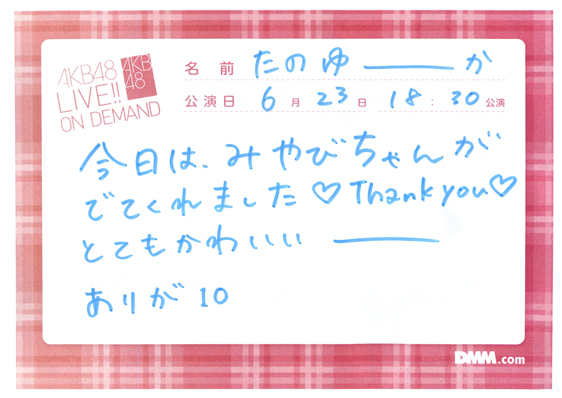 AKB48
LIVE!!
ON DEMAND
AKB
48
名前 たのゆーーーか
公演日 6月23日 18:30公演
今日は、みやびちゃんが
でてくれました♡Thank you♡
とてもかわいい ———
ありが10
DMM.com